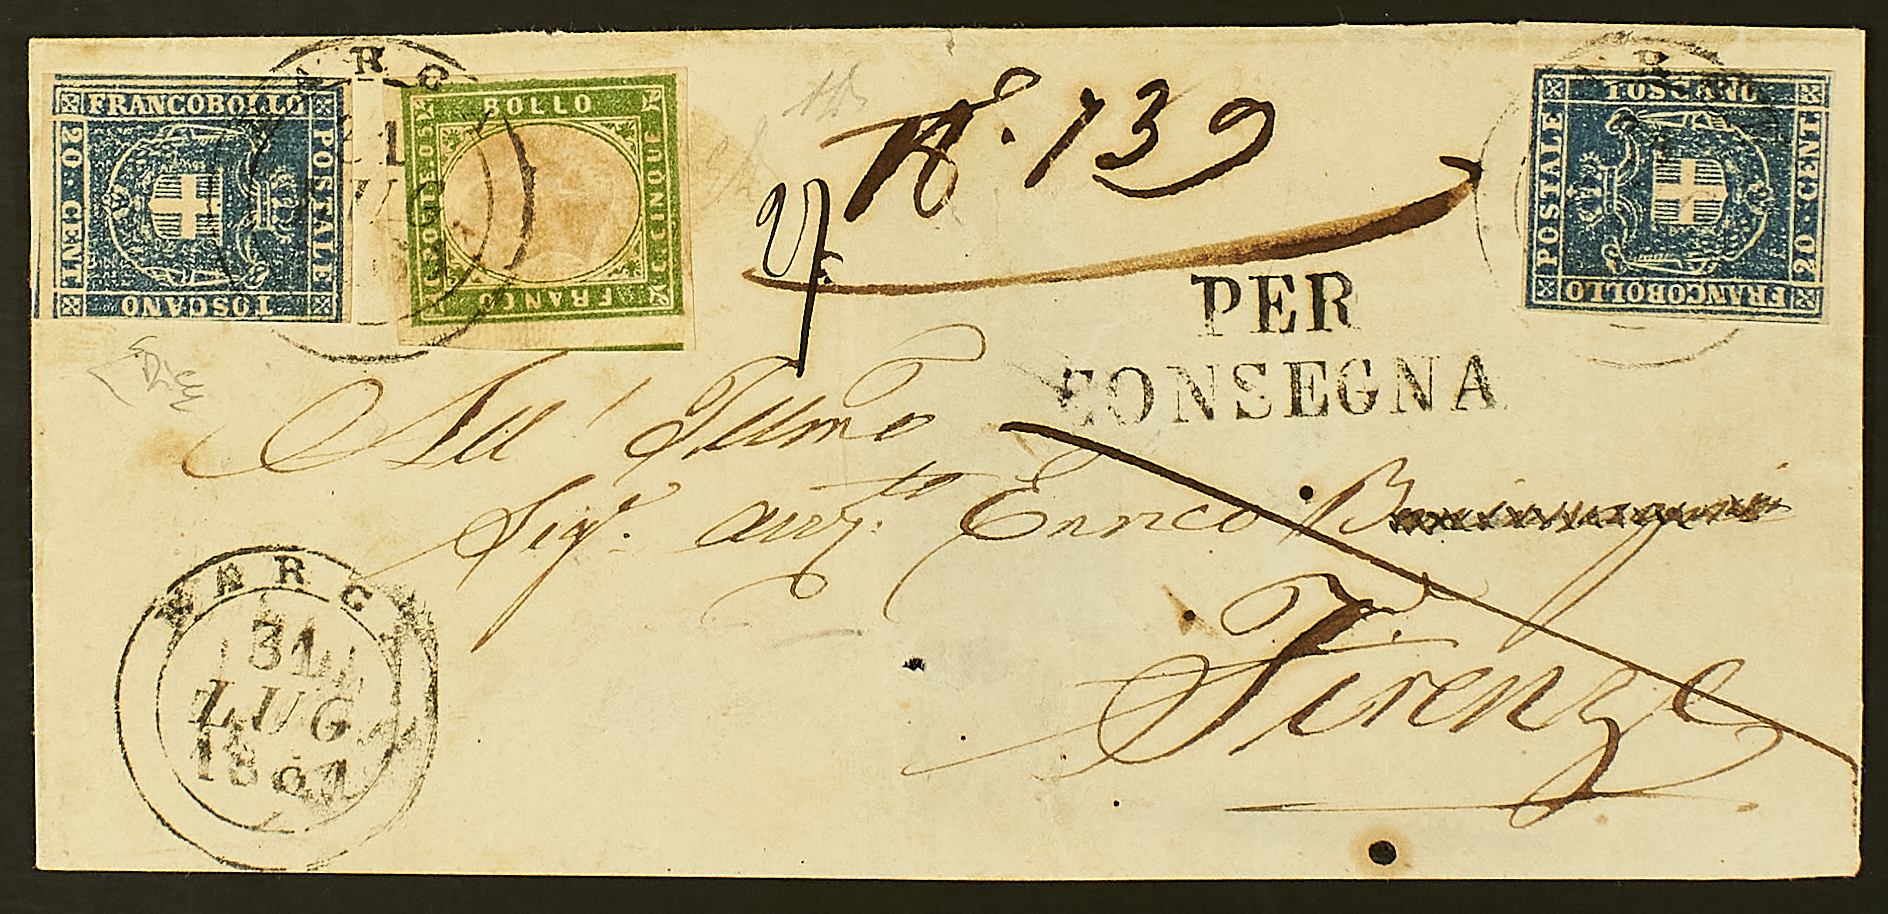 FRANCOBOLLO
POSTALE
20 CENT
TOSCANO
BOLLO
C. POSTE 05
C. CINQUE
FRANCO
TOSCANO
POSTALE
20 CENT
FRANCOBOLLO
21
LUG
No. 739
PER
CONSEGNA
All' Illmo
Sigr. avv.to Enrico
Firenze
31
LUG
1861